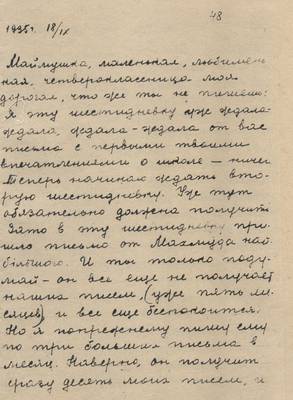 48
1935г. 18/IX
Майлушка, маленькая, любимень
кая, четвероклассница моя
дорогая, что же ты не пишешь?
Я эту шестидневку уже ждала-
ждала, ждала-ждала от вас
письма с первыми твоими
впечатлениями о школе — ничег
Теперь начинаю ждать вто-
рую шестидневку. Уже тут
обязательно должна получить.
Зато в эту шестидневку при-
шло письмо от Махмуда най-
большого. И ты только поду-
май — он все еще не получает
наших писем, (уже пять ме-
сяцев) и все еще беспокоится.
Но я попрежнему пишу ему
по три больших письма в
месяц. Наверно, он получит
сразу десять моих писем, и